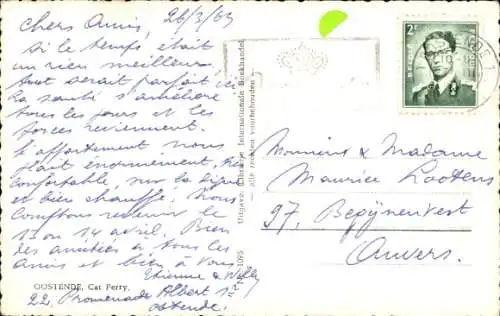 26/3/63
Chers Amis,
si le temps était
un rien meilleur,
tout serait parfait ici
La santé s'améliore
tous les jours et les
forces reviennent.
L'appartement nous
plait énormément, très
confortable, sur la digue
et bien chauffé. Nous
comptons revenir le
13 ou 14 avril. Bien
des amitiés à tous les
Amis et bien à vous
Etienne & Nelly
OOSTENDE, Cat Ferry.
22, Promenade Albert 1er
Ostende.
Uitgave: Librairie Internationale Boekhandel
— alle rechten voorbehouden —
1095
2F
Monsieur & Madame
Maurice Lootens
97, Begijnenvest
Anvers.